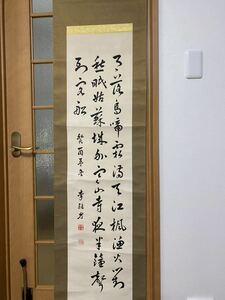 月落烏啼霜満天江楓漁火對
愁眠姑蘇城外寒山寺夜半鐘聲
到客船
癸酉 冬 李